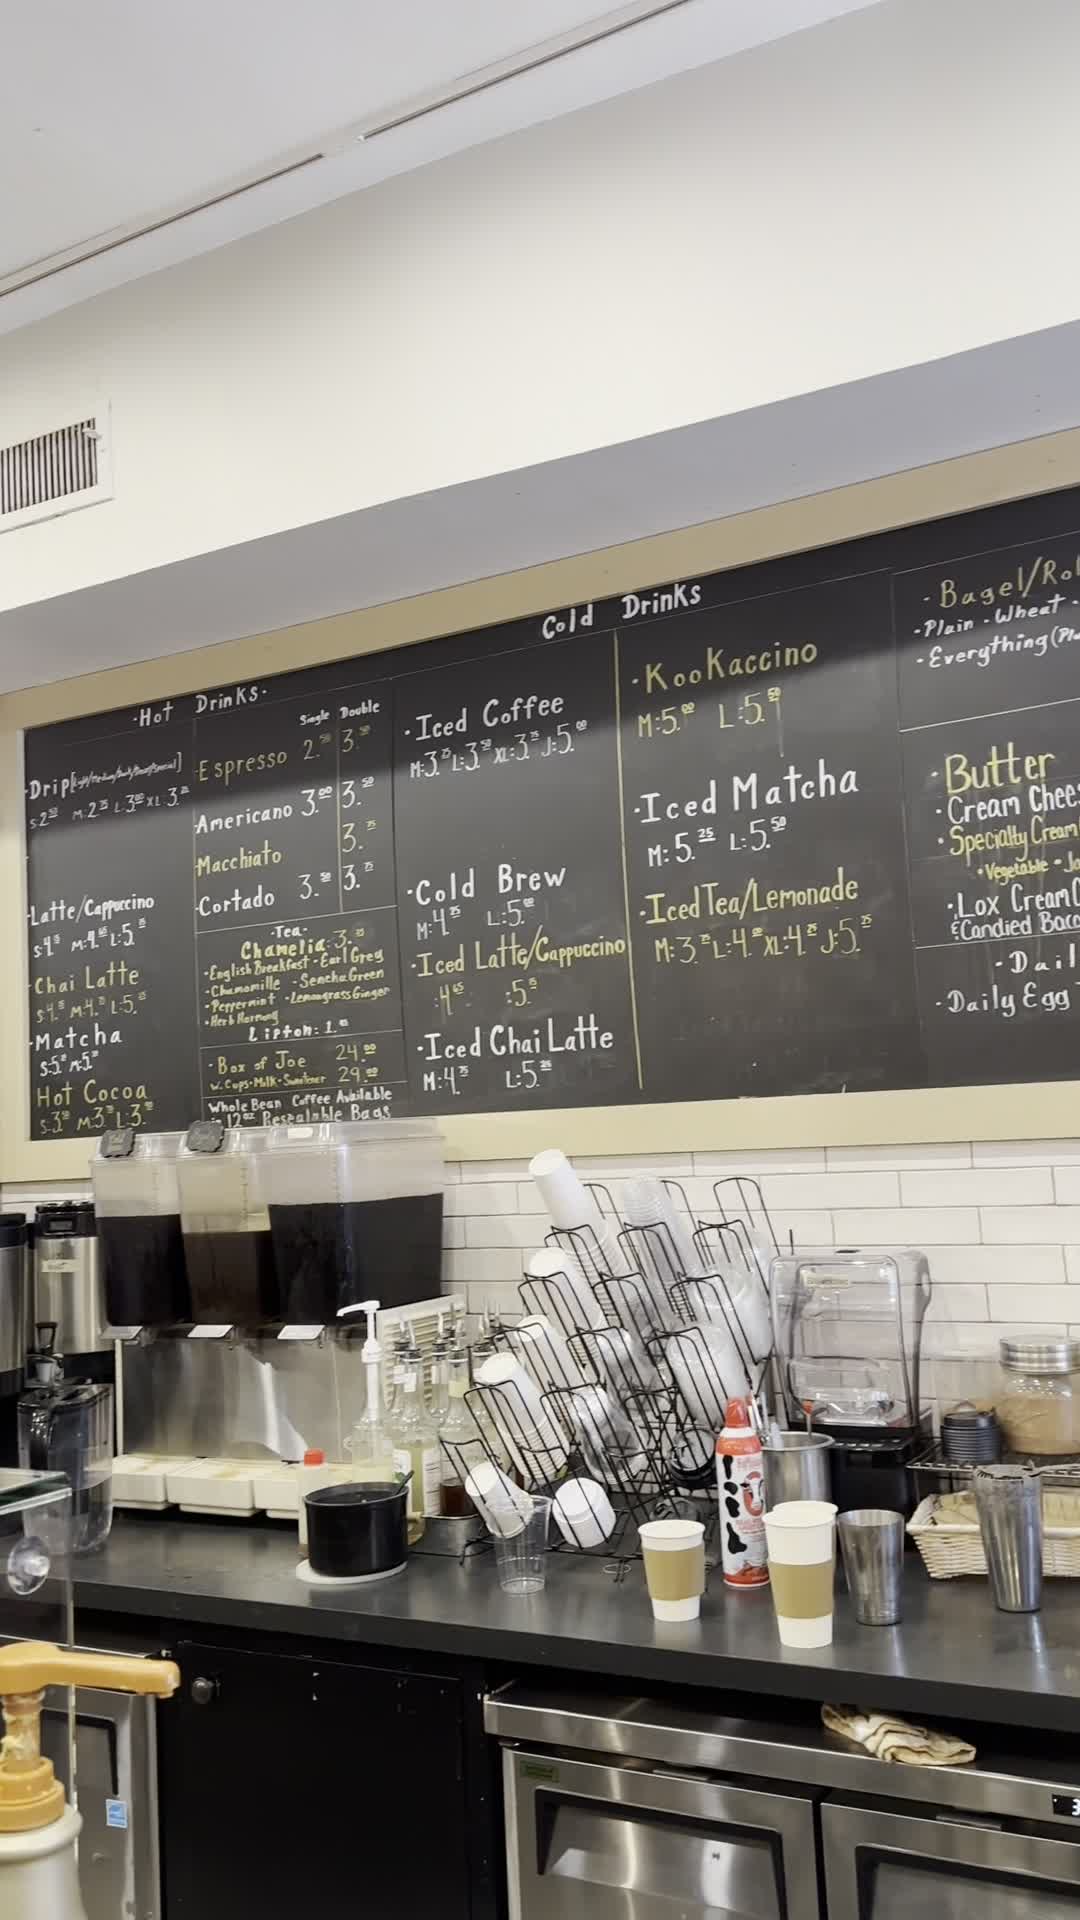 ·Hot Drinks·
Drip
S:2.50 M:2.75 L:3.00 XL:3.
Latte/Cappuccino
S:4. M:4. L:5.
Chai Latte
S:4. M:4. L:5.
Matcha
S:5. M:5.
Hot Cocoa
S:3. M:3. L:3.
Single Double
Espresso 2. 3.
Americano 3.00 3.50
Macchiato 3.75
Cortado 3.50 3.75
·Tea·
Chamelia: 3.
·English Breakfast ·Earl Grey
·Chamomille ·Sencha Green
·Peppermint ·Lemongrass Ginger
·Herb Harmony
Lipton: 1.
·Box of Joe 24.00
w. Cups·Milk·Sweetener 29.00
Whole Bean Coffee Available
in 12oz Resealable Bags
Cold Drinks
·Iced Coffee
M:3.25 L:3.50 XL:3.75 J:5.00
·Cold Brew
M:4.75 L:5.00
·Iced Latte/Cappuccino
:4.65 :5.15
·Iced Chai Latte
M:4.75 L:5.25
·KooKaccino
M:5.00 L:5.50
·Iced Matcha
M:5.25 L:5.50
·Iced Tea/Lemonade
M:3.75 L:4.00 XL:4.25 J:5.25
·Bagel/Rol
·Plain ·Wheat ·
·Everything (Pla
·Butter
·Cream Chees
·Specialty Cream
·Vegetable ·Ja
·Lox Cream C
&Candied Baco
·Dail
·Daily Egg